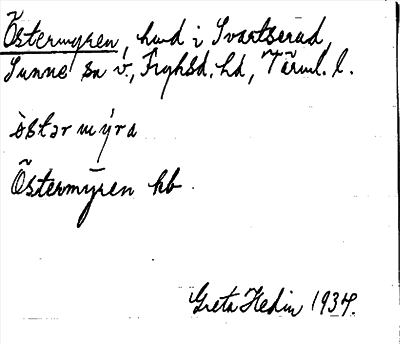 Östermyren, hmd i Svartserud,
Sunne sn v., Fryksd. hd, Värml. l.
östərmýra
Östermyren hb
Greta Hedin 1934.